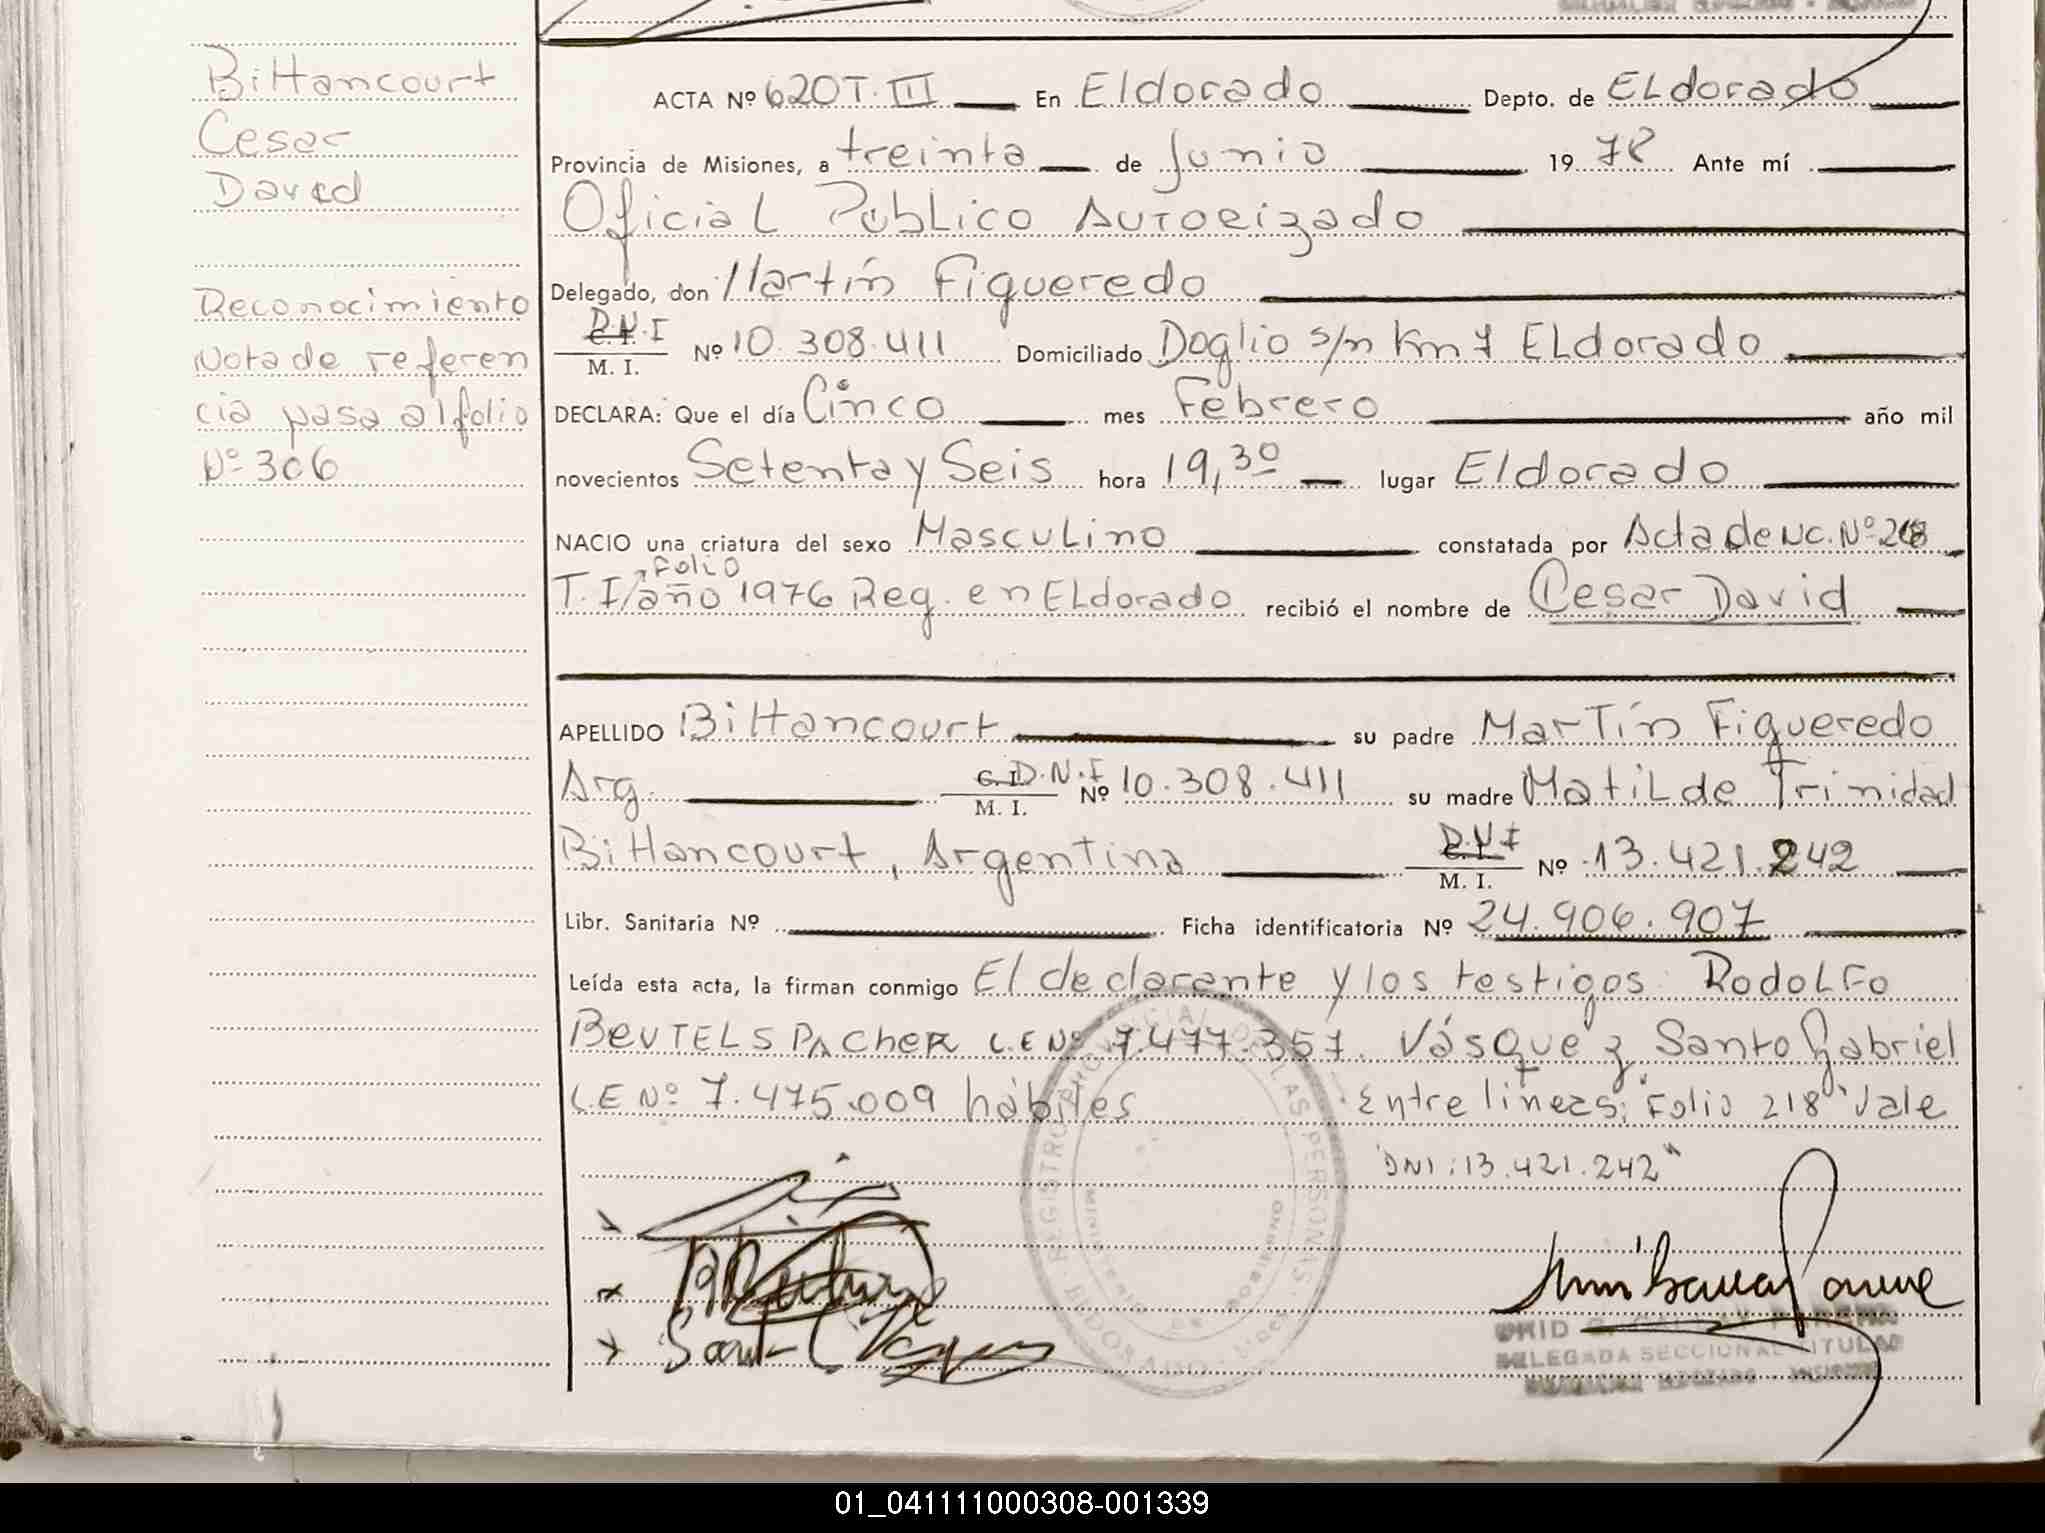 Bittancourt
Cesar
David
Reconocimiento
Nota de referen
cia pasa al folio
Nº 306
ACTA Nº 620 T. III En Eldorado Depto. de ELdorado
Provincia de Misiones, a treinta de Junio 1978 Ante mí
Oficial Público Autorizado
Delegado, don Martín Figueredo
D.N.I
C. I.
M. I. Nº 10.308.411 Domiciliado Doglio s/n Km 7 ELdorado
DECLARA: Que el día Cinco mes Febrero año mil
novecientos Setenta y Seis hora 19,30 lugar Eldorado
NACIO una criatura del sexo Masculino constatada por Acta de NC. Nº 218
Folio
T. I/año 1976 Reg. en ELdorado recibió el nombre de Cesar David
APELLIDO Bittancourt su padre Martín Figueredo
Arg. C. I. D.N.I
M. I. Nº 10.308.411 su madre Matilde Trinidad
Bittancourt, Argentina D.N.I
C. I.
M. I. Nº 13.421.242
Libr. Sanitaria Nº Ficha identificatoria Nº 24.906.907
Leída esta acta, la firman conmigo El declarante y los testigos: Rodolfo
BeUTELSPACheR L.E Nº 7.477.357. Vásquez Santo Gabriel
L.E Nº 7.475.009 hábiles Entre lineas; "Folio 218" Vale
"DNI: 13.421.242"
REGISTRO PROVINCIAL DE LAS PERSONAS
MINISTERIO DE GOBIERNO
ELDORADO - Mnes.
DELEGADA SECCIONAL TITULAR
01_041111000308-001339